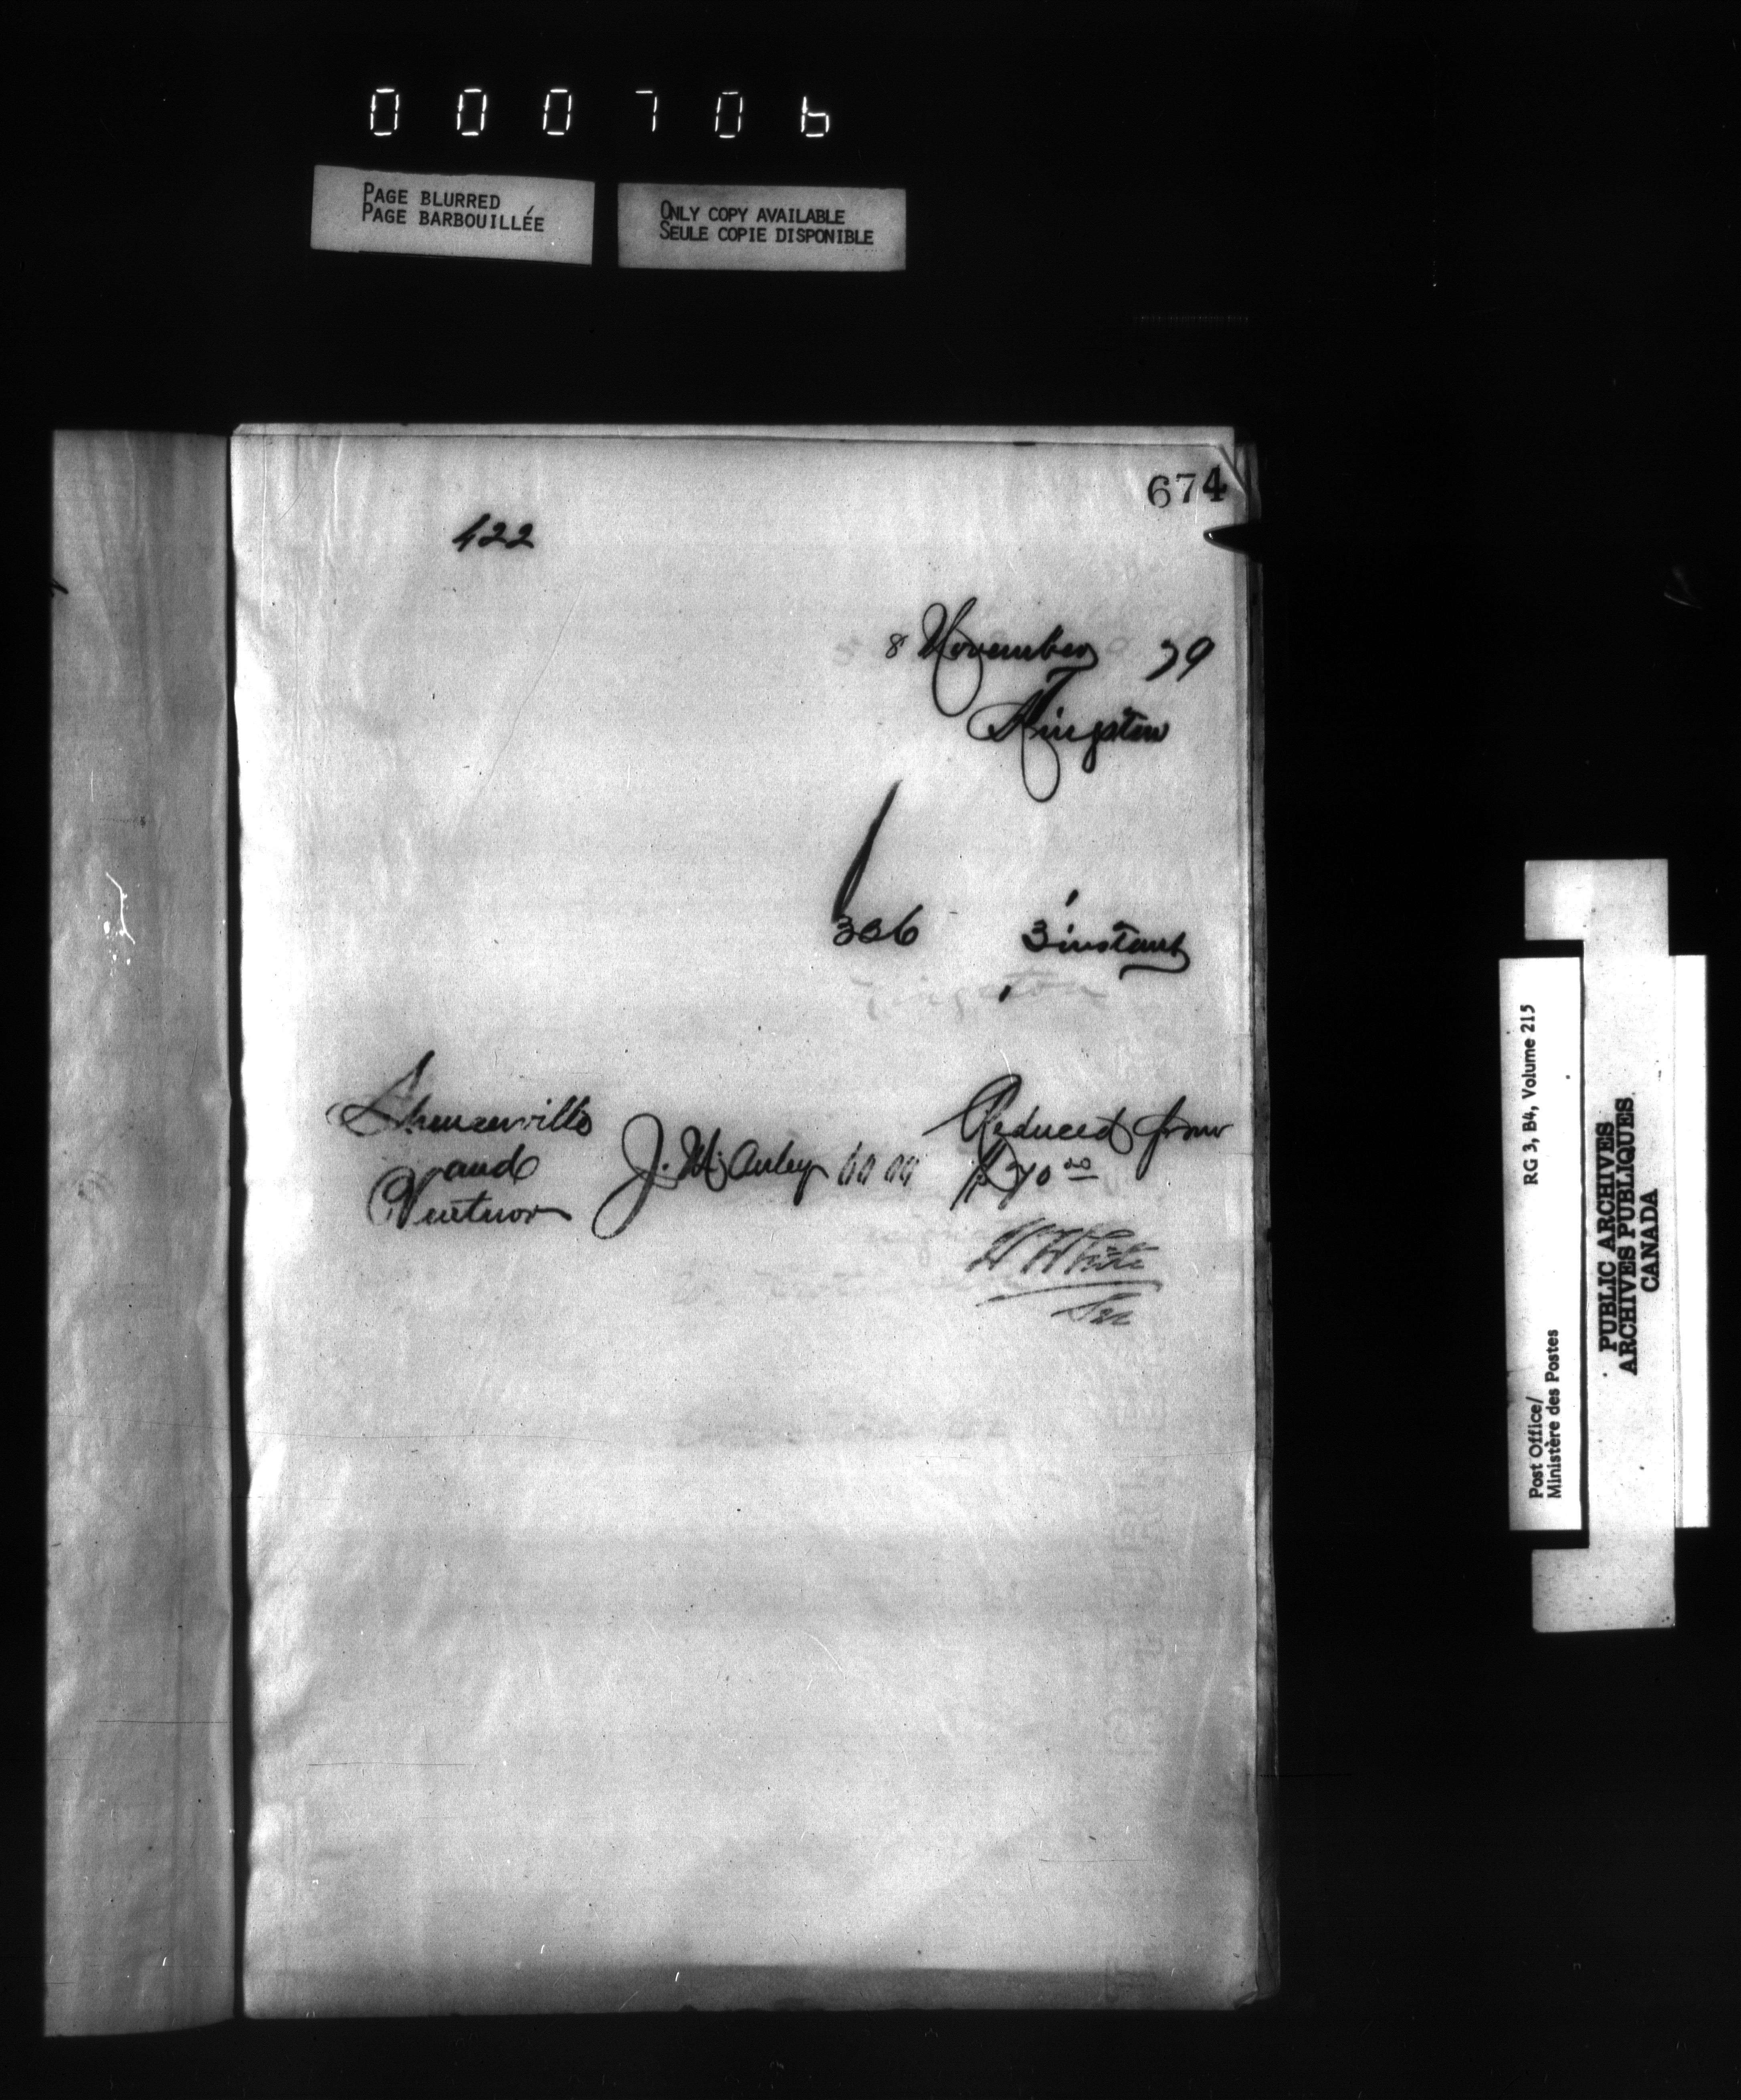 000706
PAGE BLURRED
PAGE BARBOUILLÉE
ONLY COPY AVAILABLE
SEULE COPIE DISPONIBLE
674
422
8 November 79
Kingston
336 3 instant
and
Ventnor
J. McAuley 60 00
Reduced from
$70 00
W White
Sec
RG 3, B4, Volume 215
Post Office/
Ministère des Postes
PUBLIC ARCHIVES
ARCHIVES PUBLIQUES
CANADA